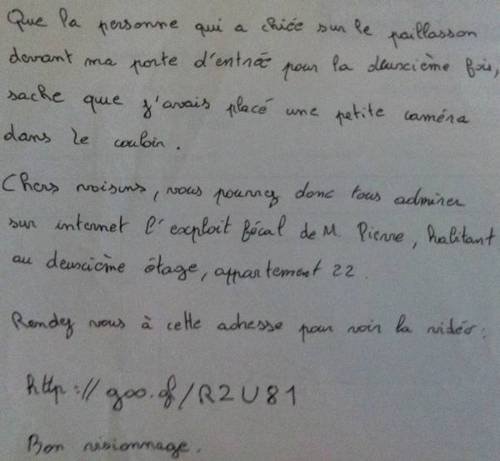 Que la personne qui a chiée sur le paillasson
devant ma porte d'entrée pour la deuxième fois,
sache que j'avais placé une petite caméra
dans le couloir.
Chers voisins, vous pourrez donc tous admirer
sur internet l'exploit fécal de M. Pierre, habitant
au deuxième étage, appartement 22.
Rendez vous à cette adresse pour voir la vidéo:
http://goo.gf/R2U81
Bon visionnage.